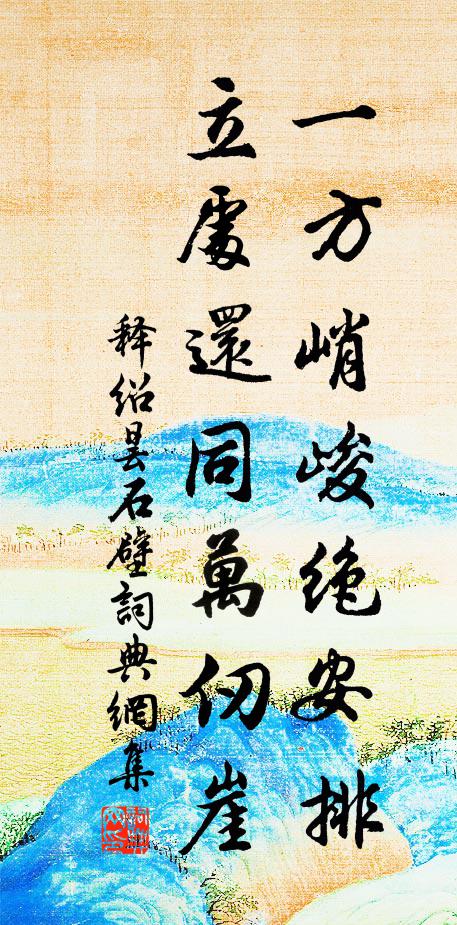 一方峭峻绝安排
立處還同萬仞崖
释绍昙石壁詞典網集